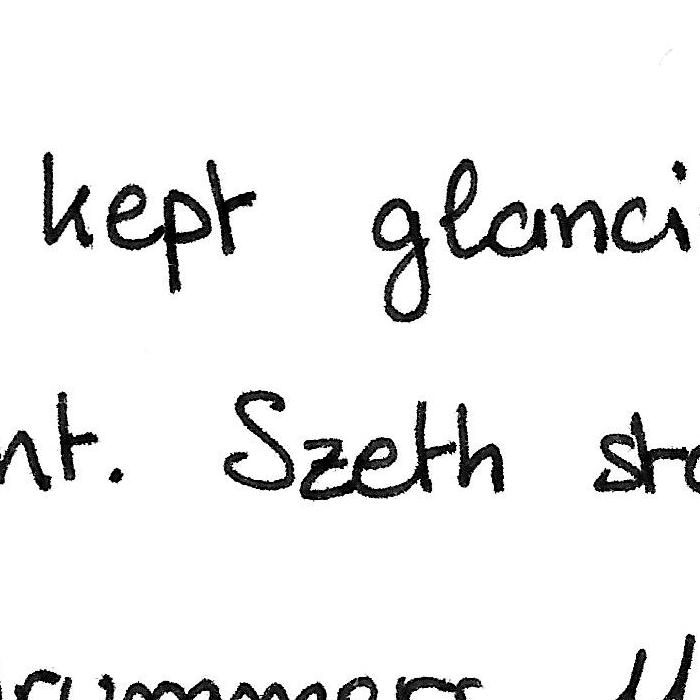 kept glanci
nt. Szeth sto
rummers